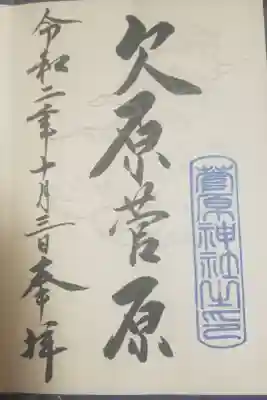 欠原菅原
菅原神社之印
令和二年十月三日奉拝